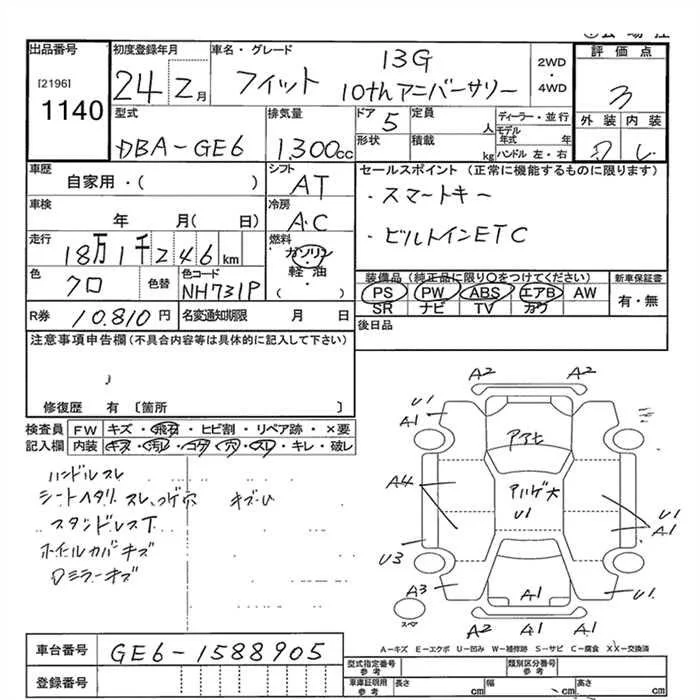 出品番号
[2196]
1140
初度登録年月
24 2月
車名・グレード
フィット
13G
10thアニバーサリー
2WD
・
4WD
評価点
3
外装 内装
型式
DBA-GE6
排気量
1.300cc
ドア
5
定員
人
ディーラー・並行
モデル
年式 年
形状
積載
kg
ハンドル 左・右
車歴
自家用・( )
シフト
AT
セールスポイント (正常に機能するものに限ります)
・スマートキー
・ビルトインETC
車検
年 月( 日)
冷房
A.C
走行
18万1千246km
燃料
ガソリン
・
軽油
・
( )
色
クロ
色替
色コード
NH731P
装備品 (純正品に限り○をつけてください)
PS PW ABS エアB AW
SR ナビ TV カワ
新車保証書
有・無
R券
10.810円
名変通知期限
月 日
後日品
注意事項申告欄(不具合内容等は具体的に記入して下さい)
修復歴 有 〔箇所 〕
検査員
記入欄
FW キズ・飛石・ヒビ割・リペア跡・×要
内装 キズ・汚レ・コゲ・穴・スレ・キレ・破レ
ハンドルスレ
シートヘタリ スレ、コゲ穴 キズU
ホイールカバキズ
Dミラーキズ
A2 A2
U1
A1
アアヒ
A4
アルゲ大
U1
U1
A1
U3
A3
A1
U1
A2 A1 A1
スペア
A-キズ E-エクボ U-凹み W-補修跡 S-サビ C-腐食 XX-交換済
車台番号
GE6-1588905
登録番号
型式指定番号
参考
類別区分番号
参考
車庫証明用
参考
長さ cm
幅 cm
高さ cm